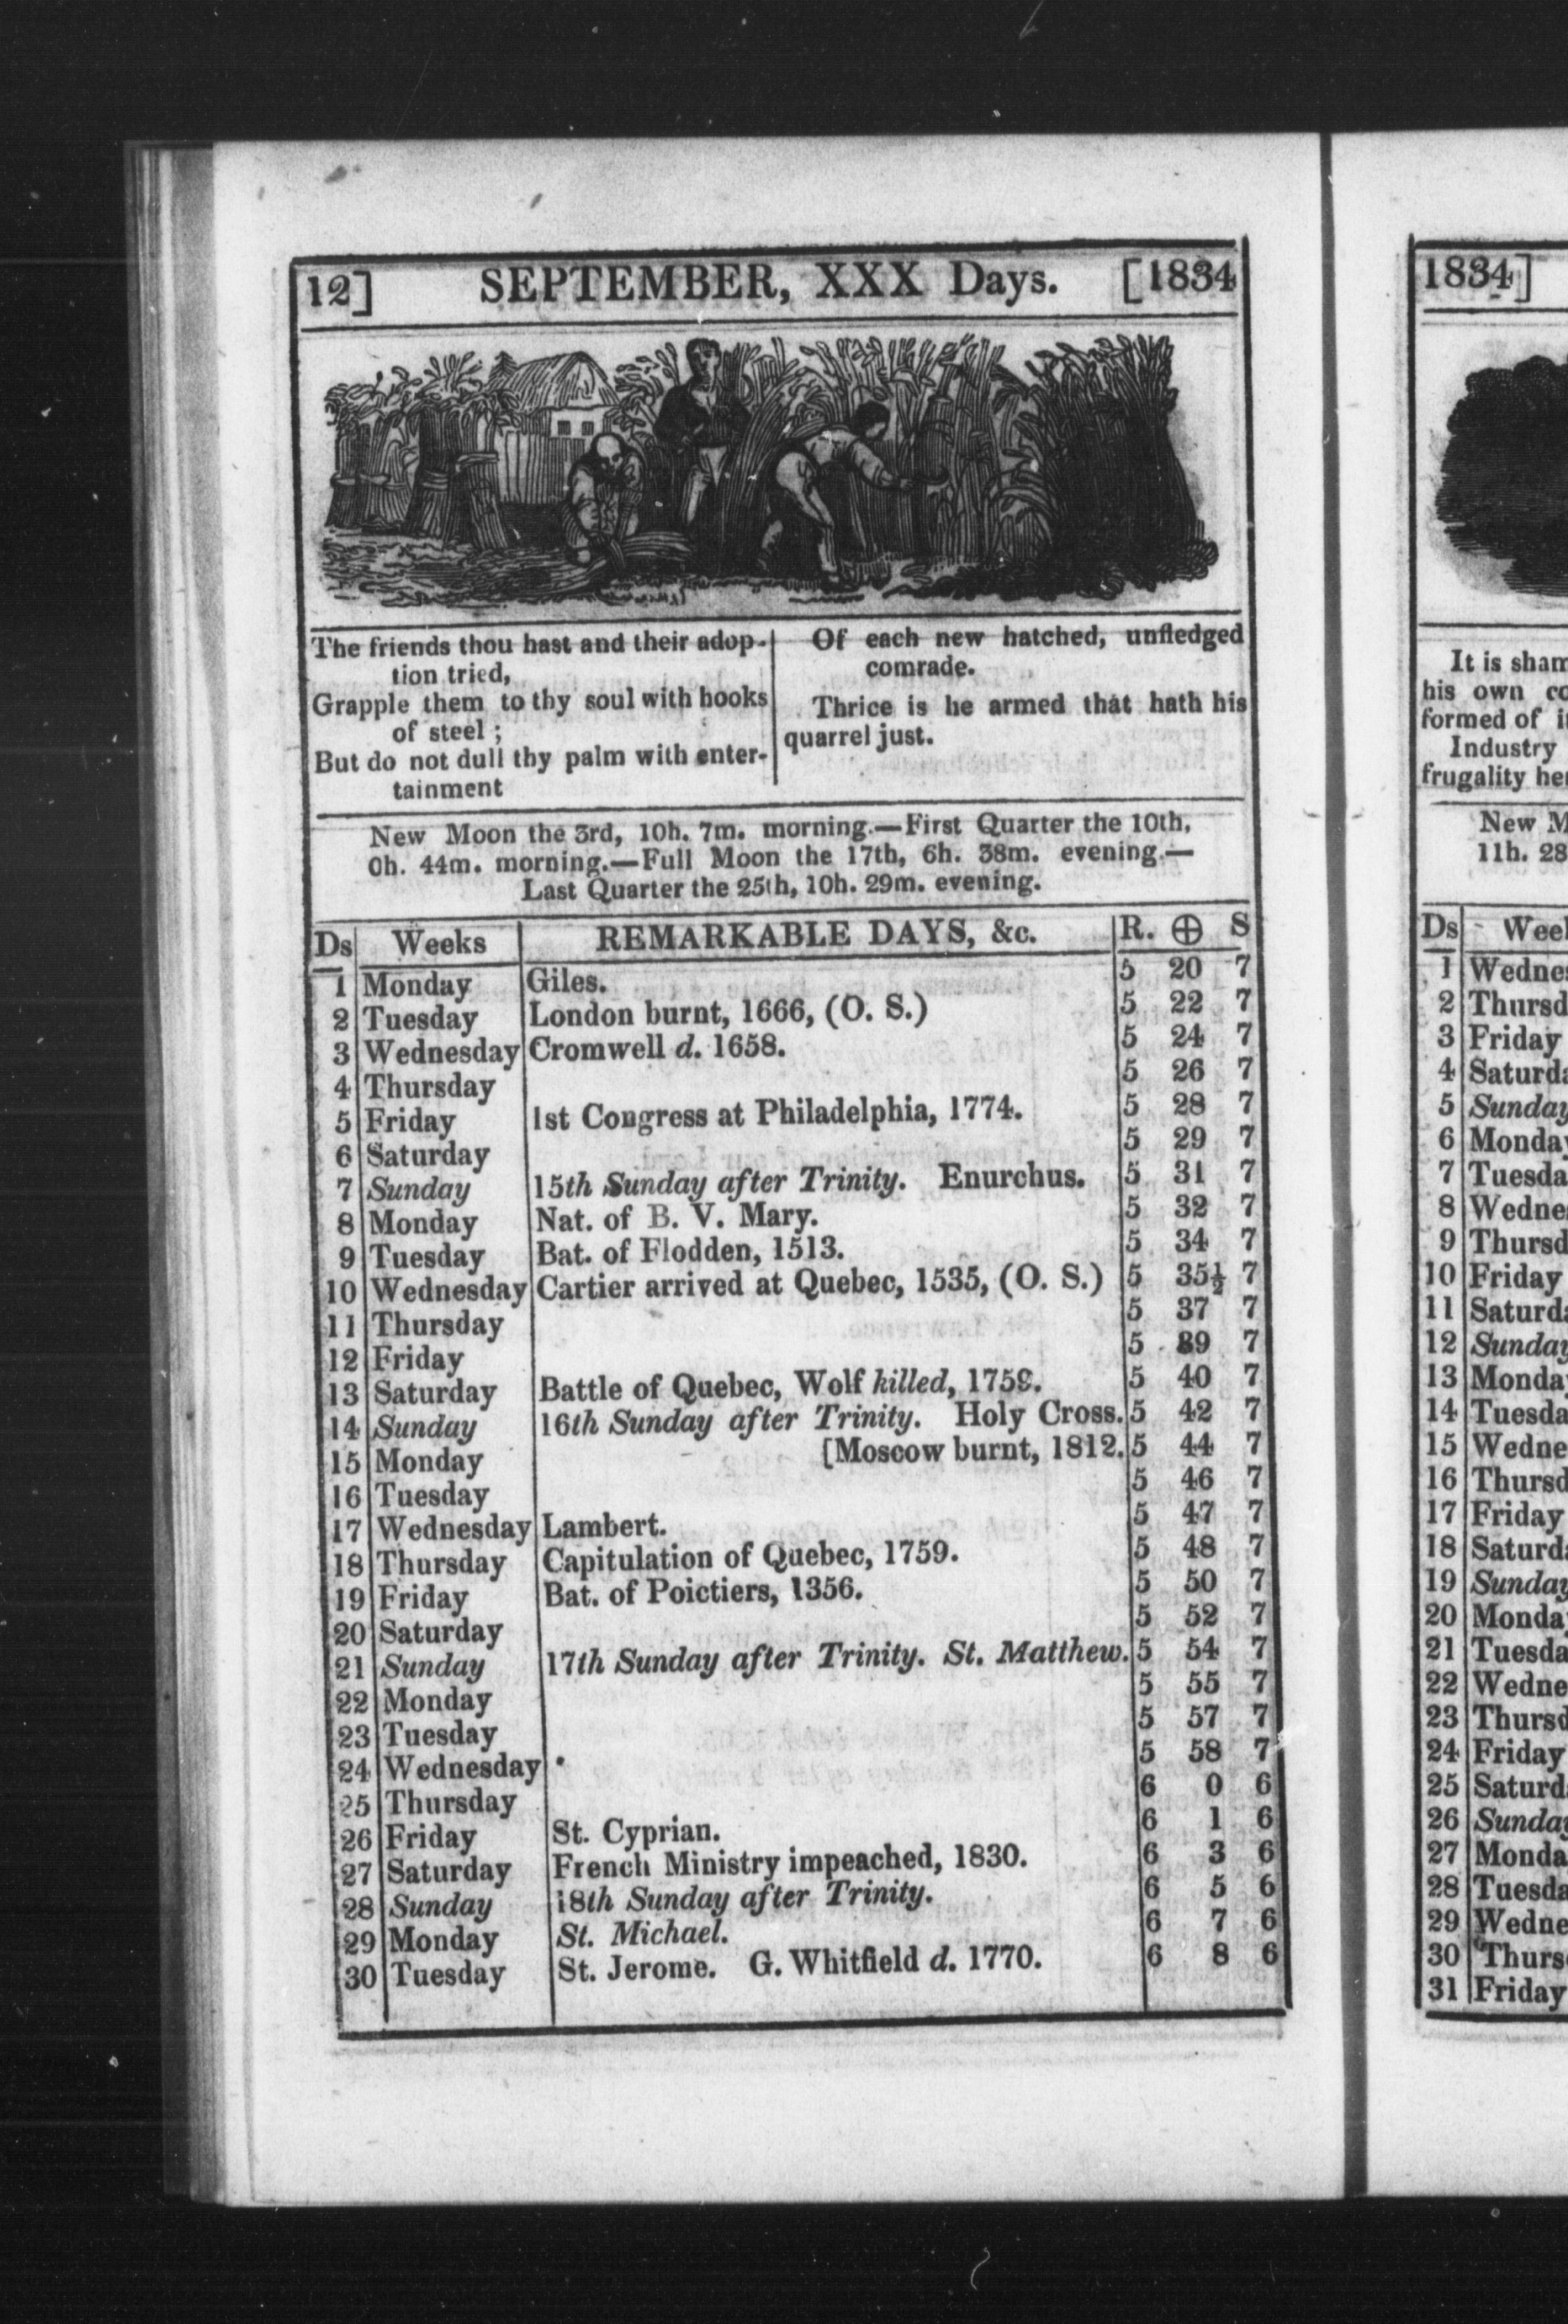 12] SEPTEMBER, XXX Days. [1834
The friends thou hast and their adop-
tion tried,
Grapple them to thy soul with hooks
of steel ;
But do not dull thy palm with enter-
tainment
Of each new hatched, unfledged
comrade.
Thrice is he armed that hath his
quarrel just.
New Moon the 3rd, 10h. 7m. morning.—First Quarter the 10th,
0h. 44m. morning.—Full Moon the 17th, 6h. 38m. evening.—
Last Quarter the 25th, 10h. 29m. evening.
Ds Weeks REMARKABLE DAYS, &c. R. ⊕ S
1 Monday Giles. 5 20 7
2 Tuesday London burnt, 1666, (O. S.) 5 22 7
3 Wednesday Cromwell d. 1658. 5 24 7
4 Thursday 5 26 7
5 Friday 1st Congress at Philadelphia, 1774. 5 28 7
6 Saturday 5 29 7
7 Sunday 15th Sunday after Trinity. Enurchus. 5 31 7
8 Monday Nat. of B. V. Mary. 5 32 7
9 Tuesday Bat. of Flodden, 1513. 5 34 7
10 Wednesday Cartier arrived at Quebec, 1535, (O. S.) 5 35½ 7
11 Thursday 5 37 7
12 Friday 5 39 7
13 Saturday Battle of Quebec, Wolf killed, 1759. 5 40 7
14 Sunday 16th Sunday after Trinity. Holy Cross. 5 42 7
15 Monday [Moscow burnt, 1812. 5 44 7
16 Tuesday 5 46 7
17 Wednesday Lambert. 5 47 7
18 Thursday Capitulation of Quebec, 1759. 5 48 7
19 Friday Bat. of Poictiers, 1356. 5 50 7
20 Saturday 5 52 7
21 Sunday 17th Sunday after Trinity. St. Matthew. 5 54 7
22 Monday 5 55 7
23 Tuesday 5 57 7
24 Wednesday 5 58 7
25 Thursday 6 0 6
26 Friday St. Cyprian. 6 1 6
27 Saturday French Ministry impeached, 1830. 6 3 6
28 Sunday 18th Sunday after Trinity. 6 5 6
29 Monday St. Michael. 6 7 6
30 Tuesday St. Jerome. G. Whitfield d. 1770. 6 8 6
1834]
It is sham
his own co
formed of i
Industry
frugality he
New M
11h. 28
Ds Wee
1 Wednes
2 Thursd
3 Friday
4 Saturda
5 Sunday
6 Monday
7 Tuesda
8 Wedne
9 Thursd
10 Friday
11 Saturda
12 Sunday
13 Monda
14 Tuesda
15 Wedne
16 Thursd
17 Friday
18 Saturda
19 Sunday
20 Monda
21 Tuesda
22 Wedne
23 Thursd
24 Friday
25 Saturd
26 Sunday
27 Monda
28 Tuesda
29 Wedne
30 Thurs
31 Friday